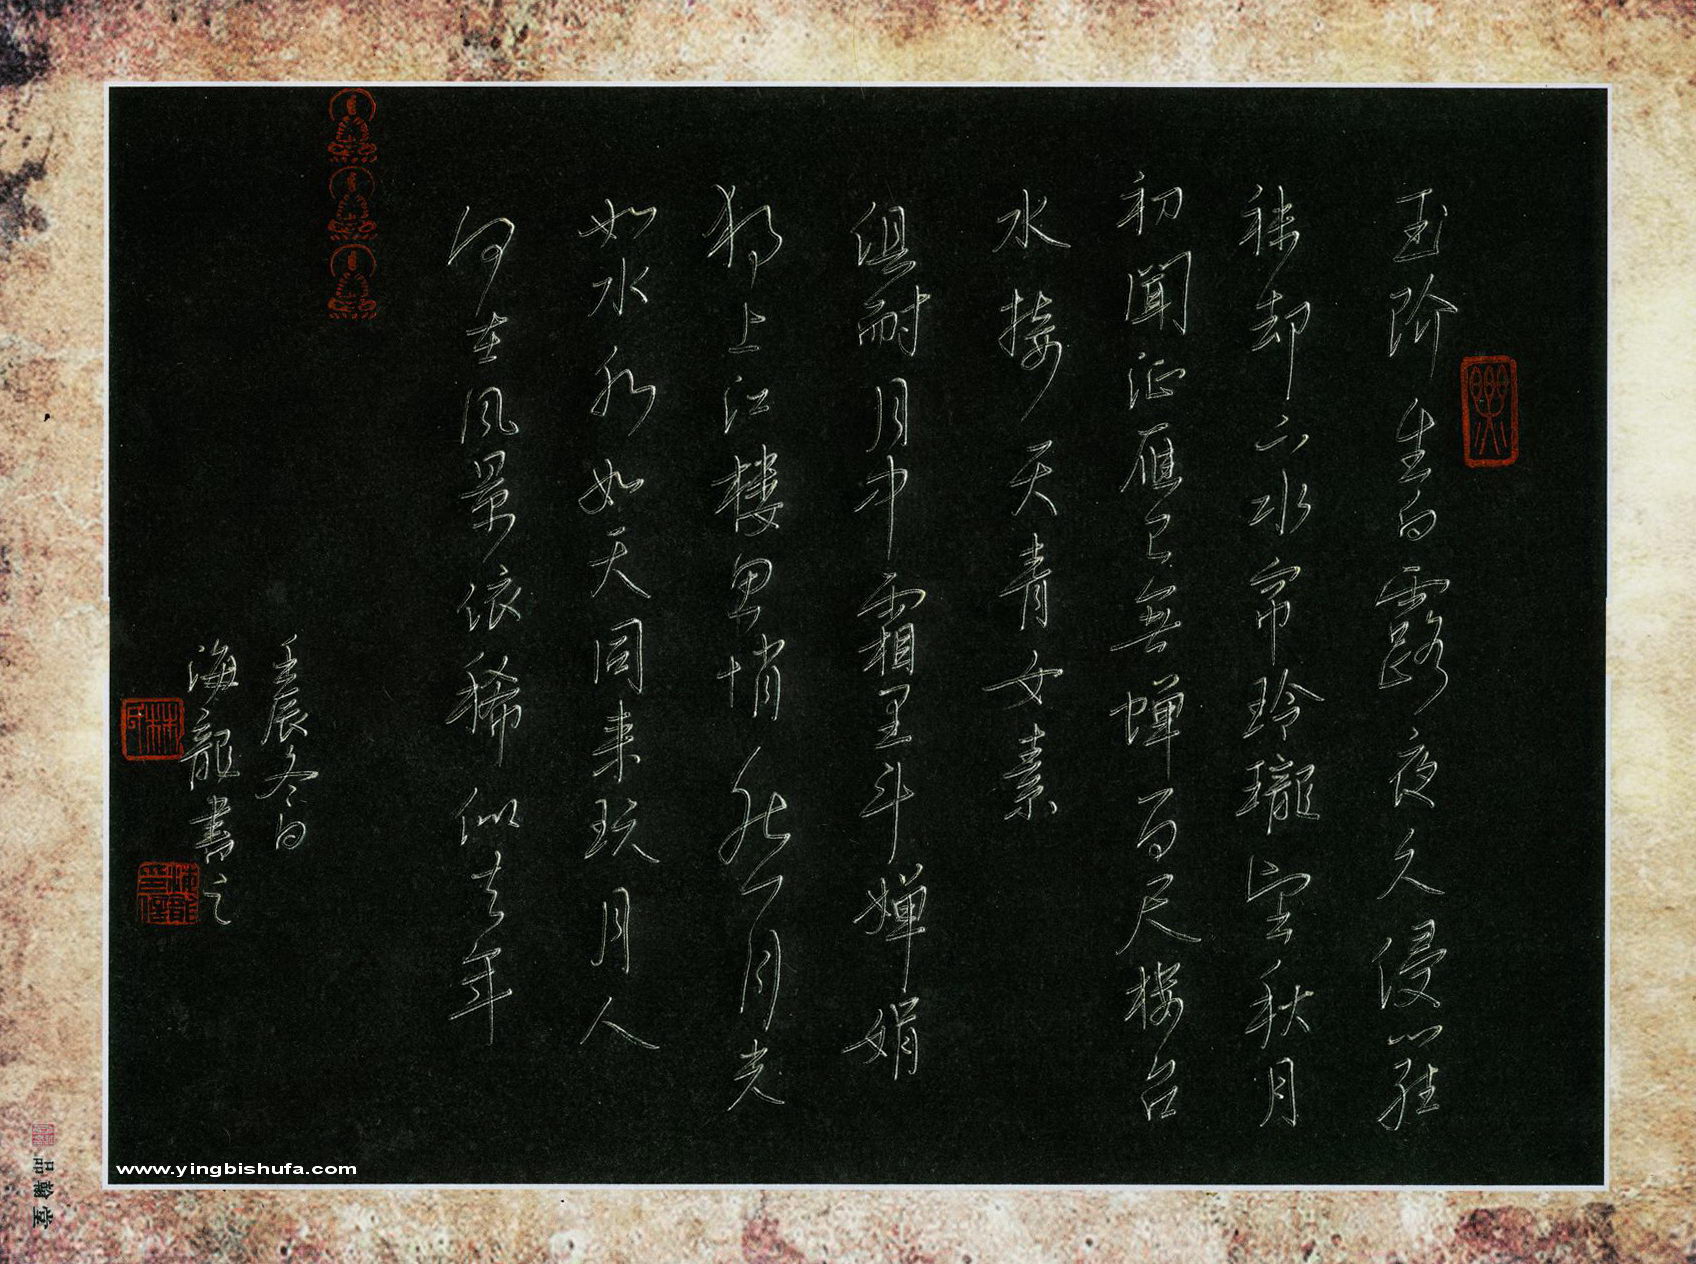 玉阶生白露夜久侵羅
袜却下水帘玲瓏望秋月
初聞征雁已無蝉百尺楼台
水接天青女素
俱耐月中霜里斗婵娟
独上江楼思悄然月光
如水水如天同来玩月人
何在风景依稀似去年
壬辰冬日
海龍書之
www.yingbishufa.com
品翰堂